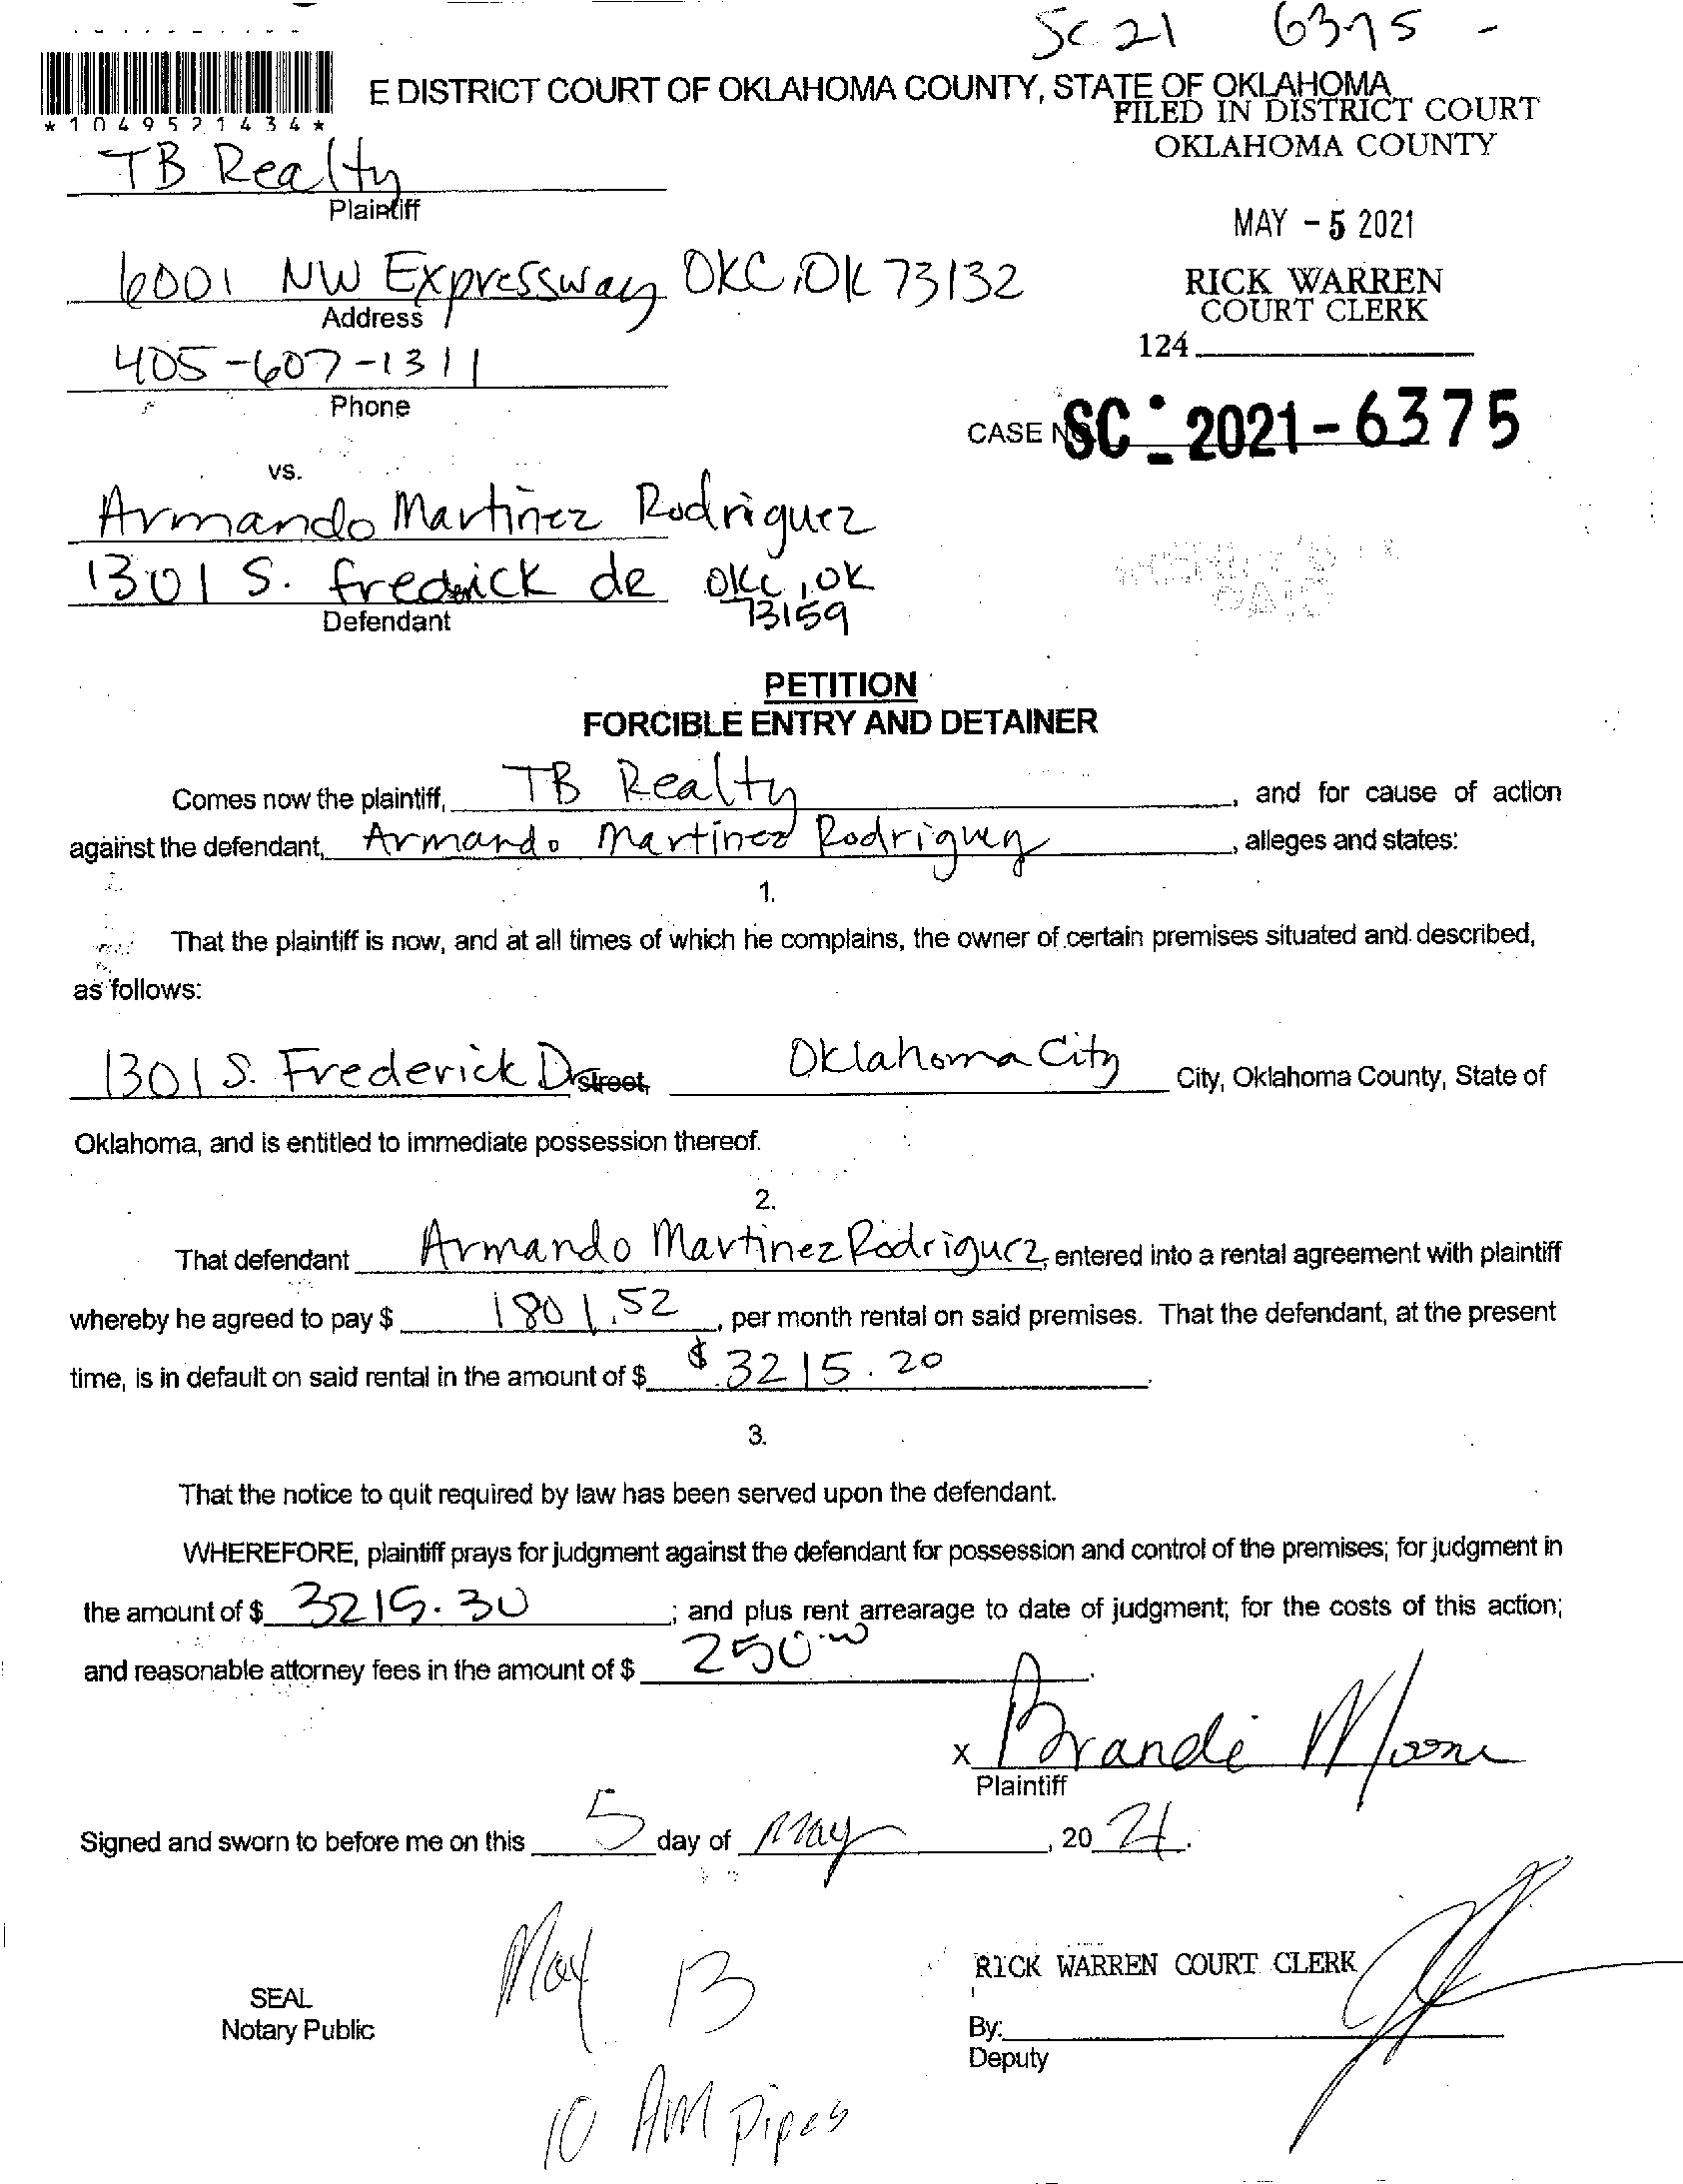 SC 21 6375 -
*1049521434*
E DISTRICT COURT OF OKLAHOMA COUNTY, STATE OF OKLAHOMA
FILED IN DISTRICT COURT
OKLAHOMA COUNTY
TB Realty
Plaintiff
MAY - 5 2021
6001 NW Expressway OKC, OK 73132
Address
RICK WARREN
COURT CLERK
405-607-1311
Phone
124
CASE NO. SC - 2021 - 6375
vs.
Armando Martinez Rodriguez
1301 S. fredrick dr OKC, OK
73159
Defendant
PETITION
FORCIBLE ENTRY AND DETAINER
Comes now the plaintiff, TB Realty, and for cause of action
against the defendant, Armando Martinez Rodriguez, alleges and states:
1.
That the plaintiff is now, and at all times of which he complains, the owner of certain premises situated and described,
as follows:
1301 S. Frederick Dr street, Oklahoma City City, Oklahoma County, State of
Oklahoma, and is entitled to immediate possession thereof.
2.
That defendant Armando Martinez Rodriguez, entered into a rental agreement with plaintiff
whereby he agreed to pay $ 1801.52, per month rental on said premises. That the defendant, at the present
time, is in default on said rental in the amount of $ $3215.20.
3.
That the notice to quit required by law has been served upon the defendant.
WHEREFORE, plaintiff prays for judgment against the defendant for possession and control of the premises; for judgment in
the amount of $ 3215.30; and plus rent arrearage to date of judgment; for the costs of this action;
and reasonable attorney fees in the amount of $ 250.00.
x Brandi Moore
Plaintiff
Signed and sworn to before me on this 5 day of May, 20 21.
May 13
RICK WARREN COURT CLERK
SEAL
Notary Public
By:
Deputy
10 AM Pipes